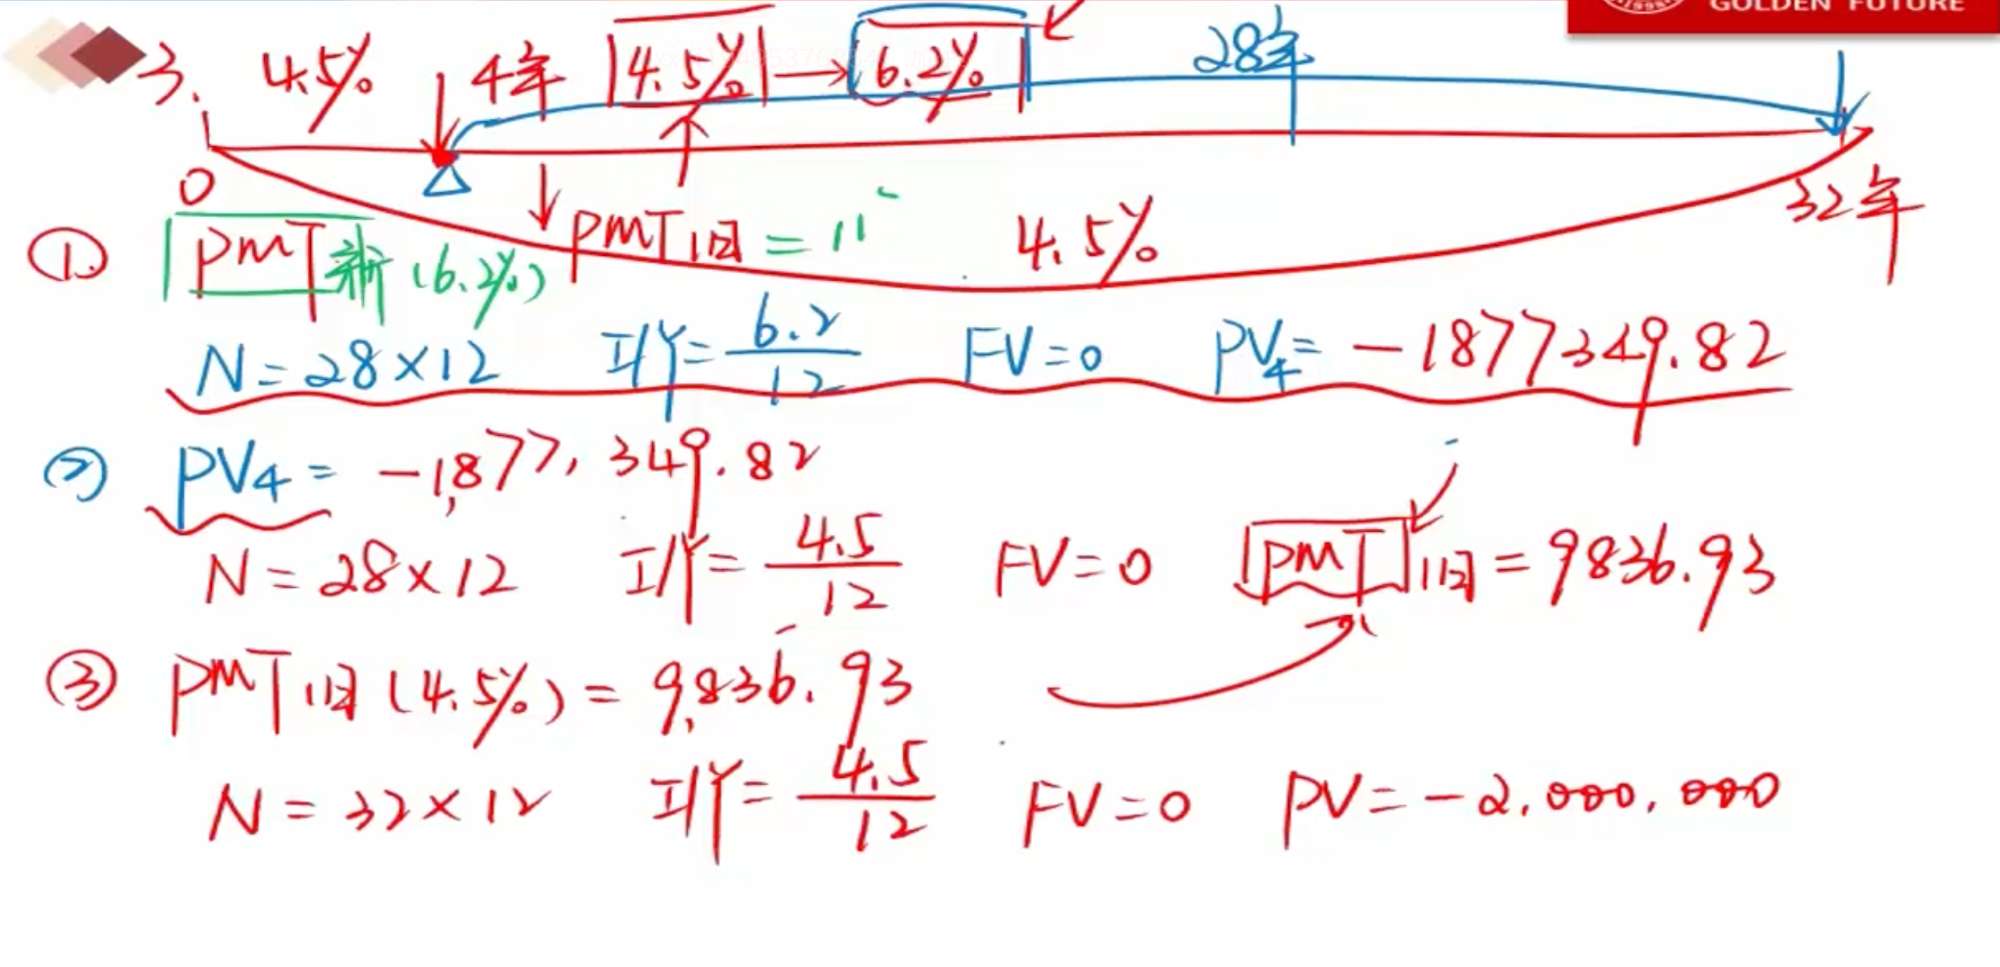 GOLDEN FUTURE
3. 4.5% 4年 4.5% → 6.2% 28年
0 32年
① PMT新(6.2%) PMT旧 = 11 4.5%
N = 28×12 I/Y = 6.2/12 FV = 0 PV4 = -1877349.82
② PV4 = -1,877,349.82
N = 28×12 I/Y = 4.5/12 FV = 0 PMT旧 = 9836.93
③ PMT旧(4.5%) = 9,836.93
N = 32×12 I/Y = 4.5/12 FV = 0 PV = -2,000,000